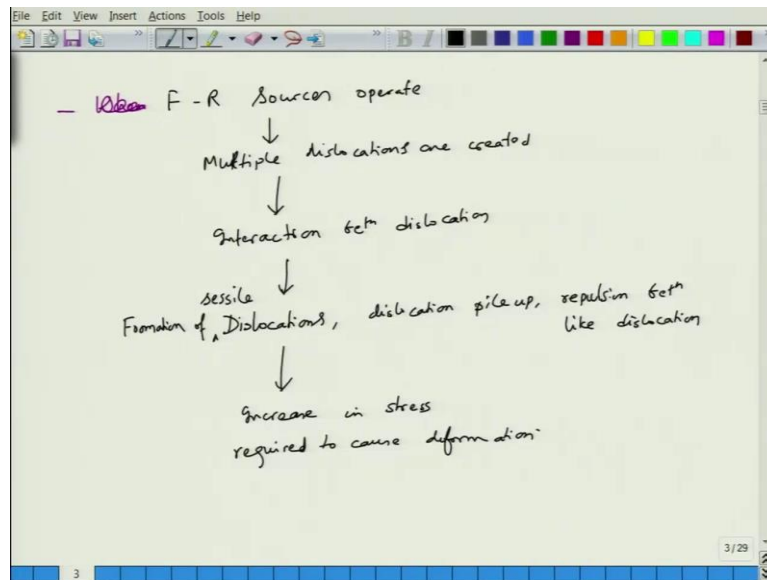 File Edit View Insert Actions Tools Help
F-R Sources operate
Multiple dislocations are created
Interaction betn dislocation
sessile
Formation of ^ Dislocations, dislocation pile up, repulsion betn
like dislocation
Increase in stress
required to cause deformation
3/29
3